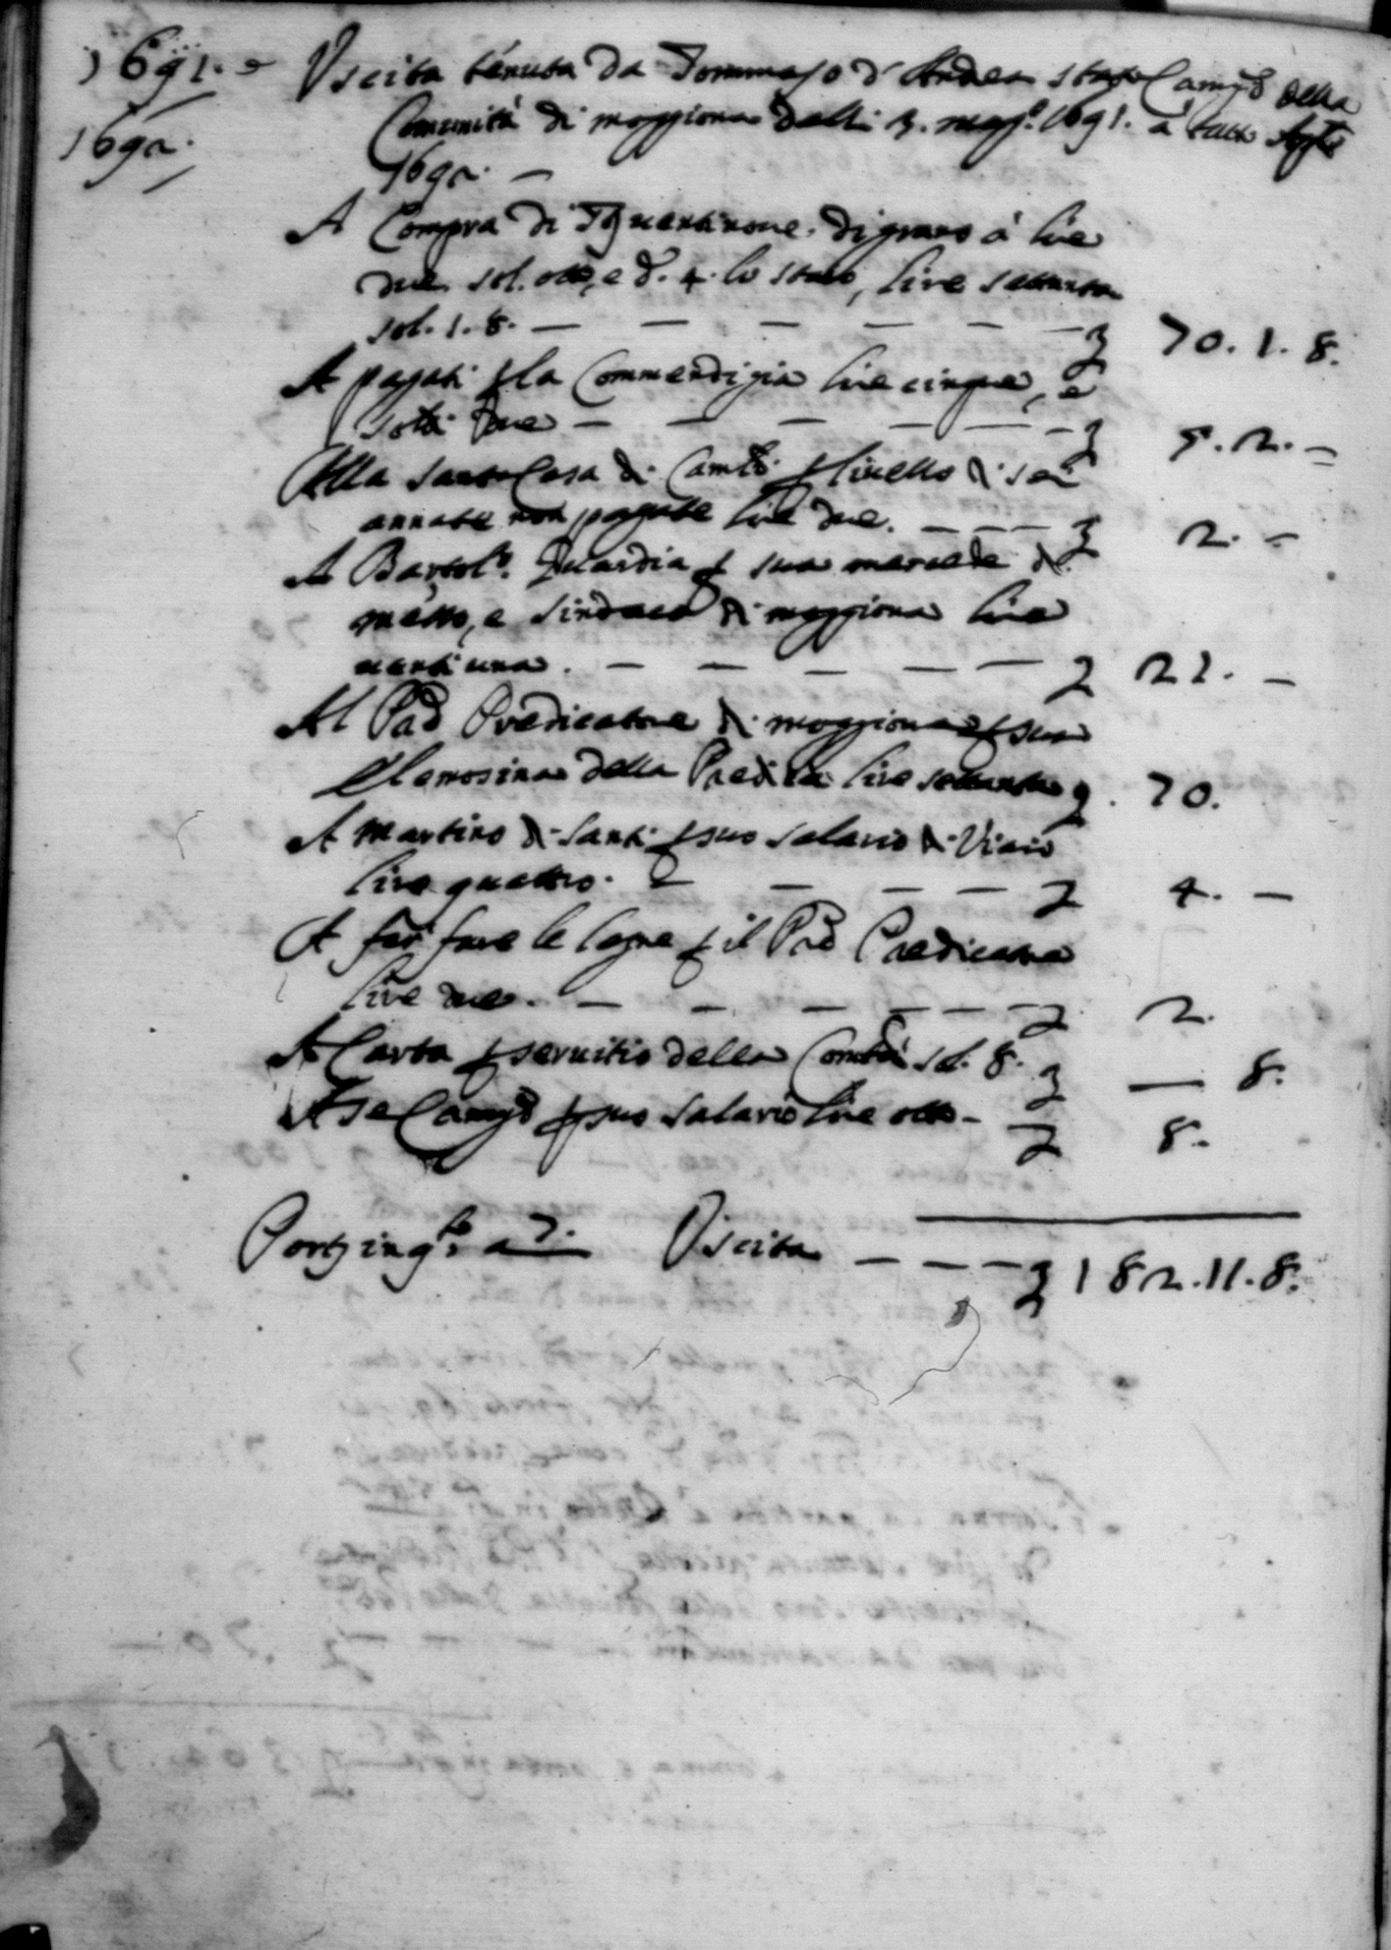 1691. e
1692.
Uscita tenuta da Tommaso d'Andrea stato Camg.º della
Comunità di moggiona dalli 3. magg.º 1691. a tutto
1692. —
A Compra di staia ventinove di grano à lire
due sol. otto, e d. 4. lo staio, lire settanta
sol. 1. 8. — — — — — — £ 70. 1. 8.
A pagati p la Commendigia lire cinque, e
soldi due — — — — — — £ 5. 2. —
Alla santa Casa di Cam.li p livello di sei
annate non pagate lire due. — — — £ 2. —
A Bartol.º Guardia p sua mercede di
messo, e sindaco di moggiona lire
ventiuna. — — — — — £ 21. —
Al Pad Predicatore di moggiona p sua
elemosina della Predica lire settanta £. 70.
A Martino di Santi p suo salario di Viaio
lire quattro. — — — — £ 4. —
A far fare le legne p il Prd Predicatore
lire due. — — — — — — £ 2.
A Carta p servitio della Comtà sol. 8. £ — 8.
A se Camgº p suo salario lire otto — £ 8.
Uscita — — — £ 182. 11. 8.